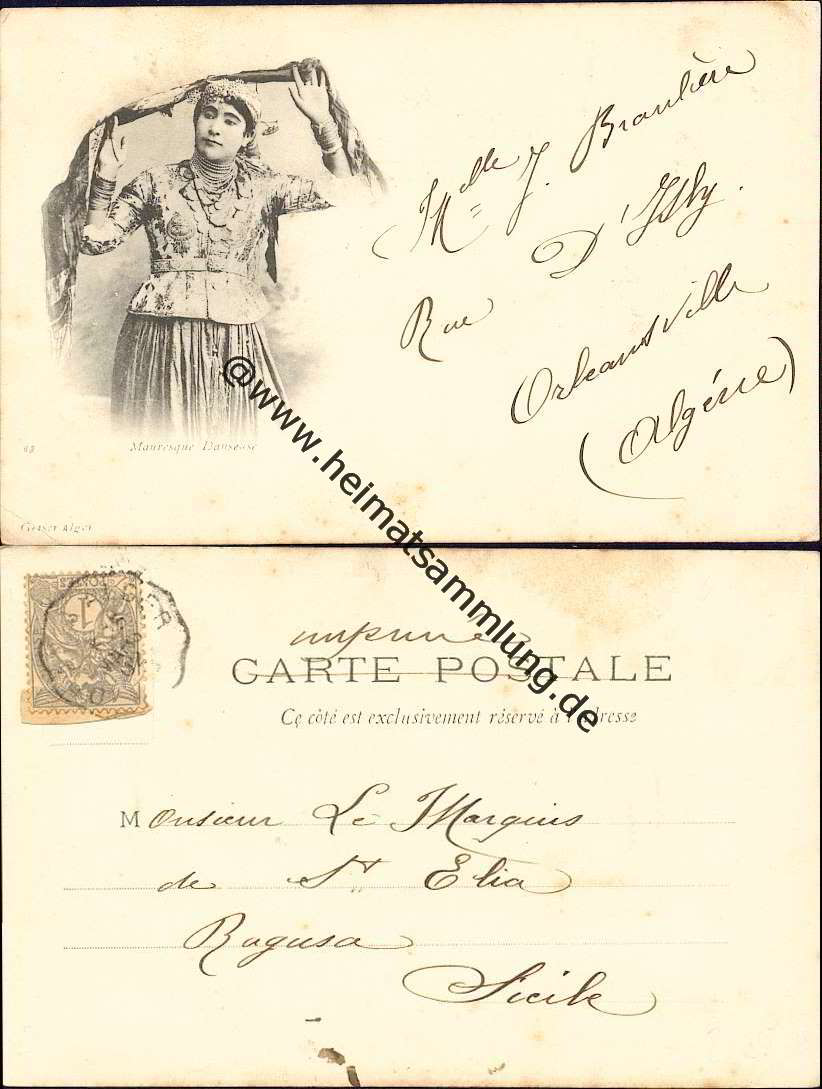 Mlle J. Braulière
Rue D'Isly.
Orleansville
(Algérie)
43
Mauresque Danseuse
Geiser Alger
@www.heimatsammlung.de
1
imprimés
CARTE POSTALE
Ce côté est exclusivement réservé à l'adresse
Monsieur Le Marquis
de St Elia
Ragusa
Sicile